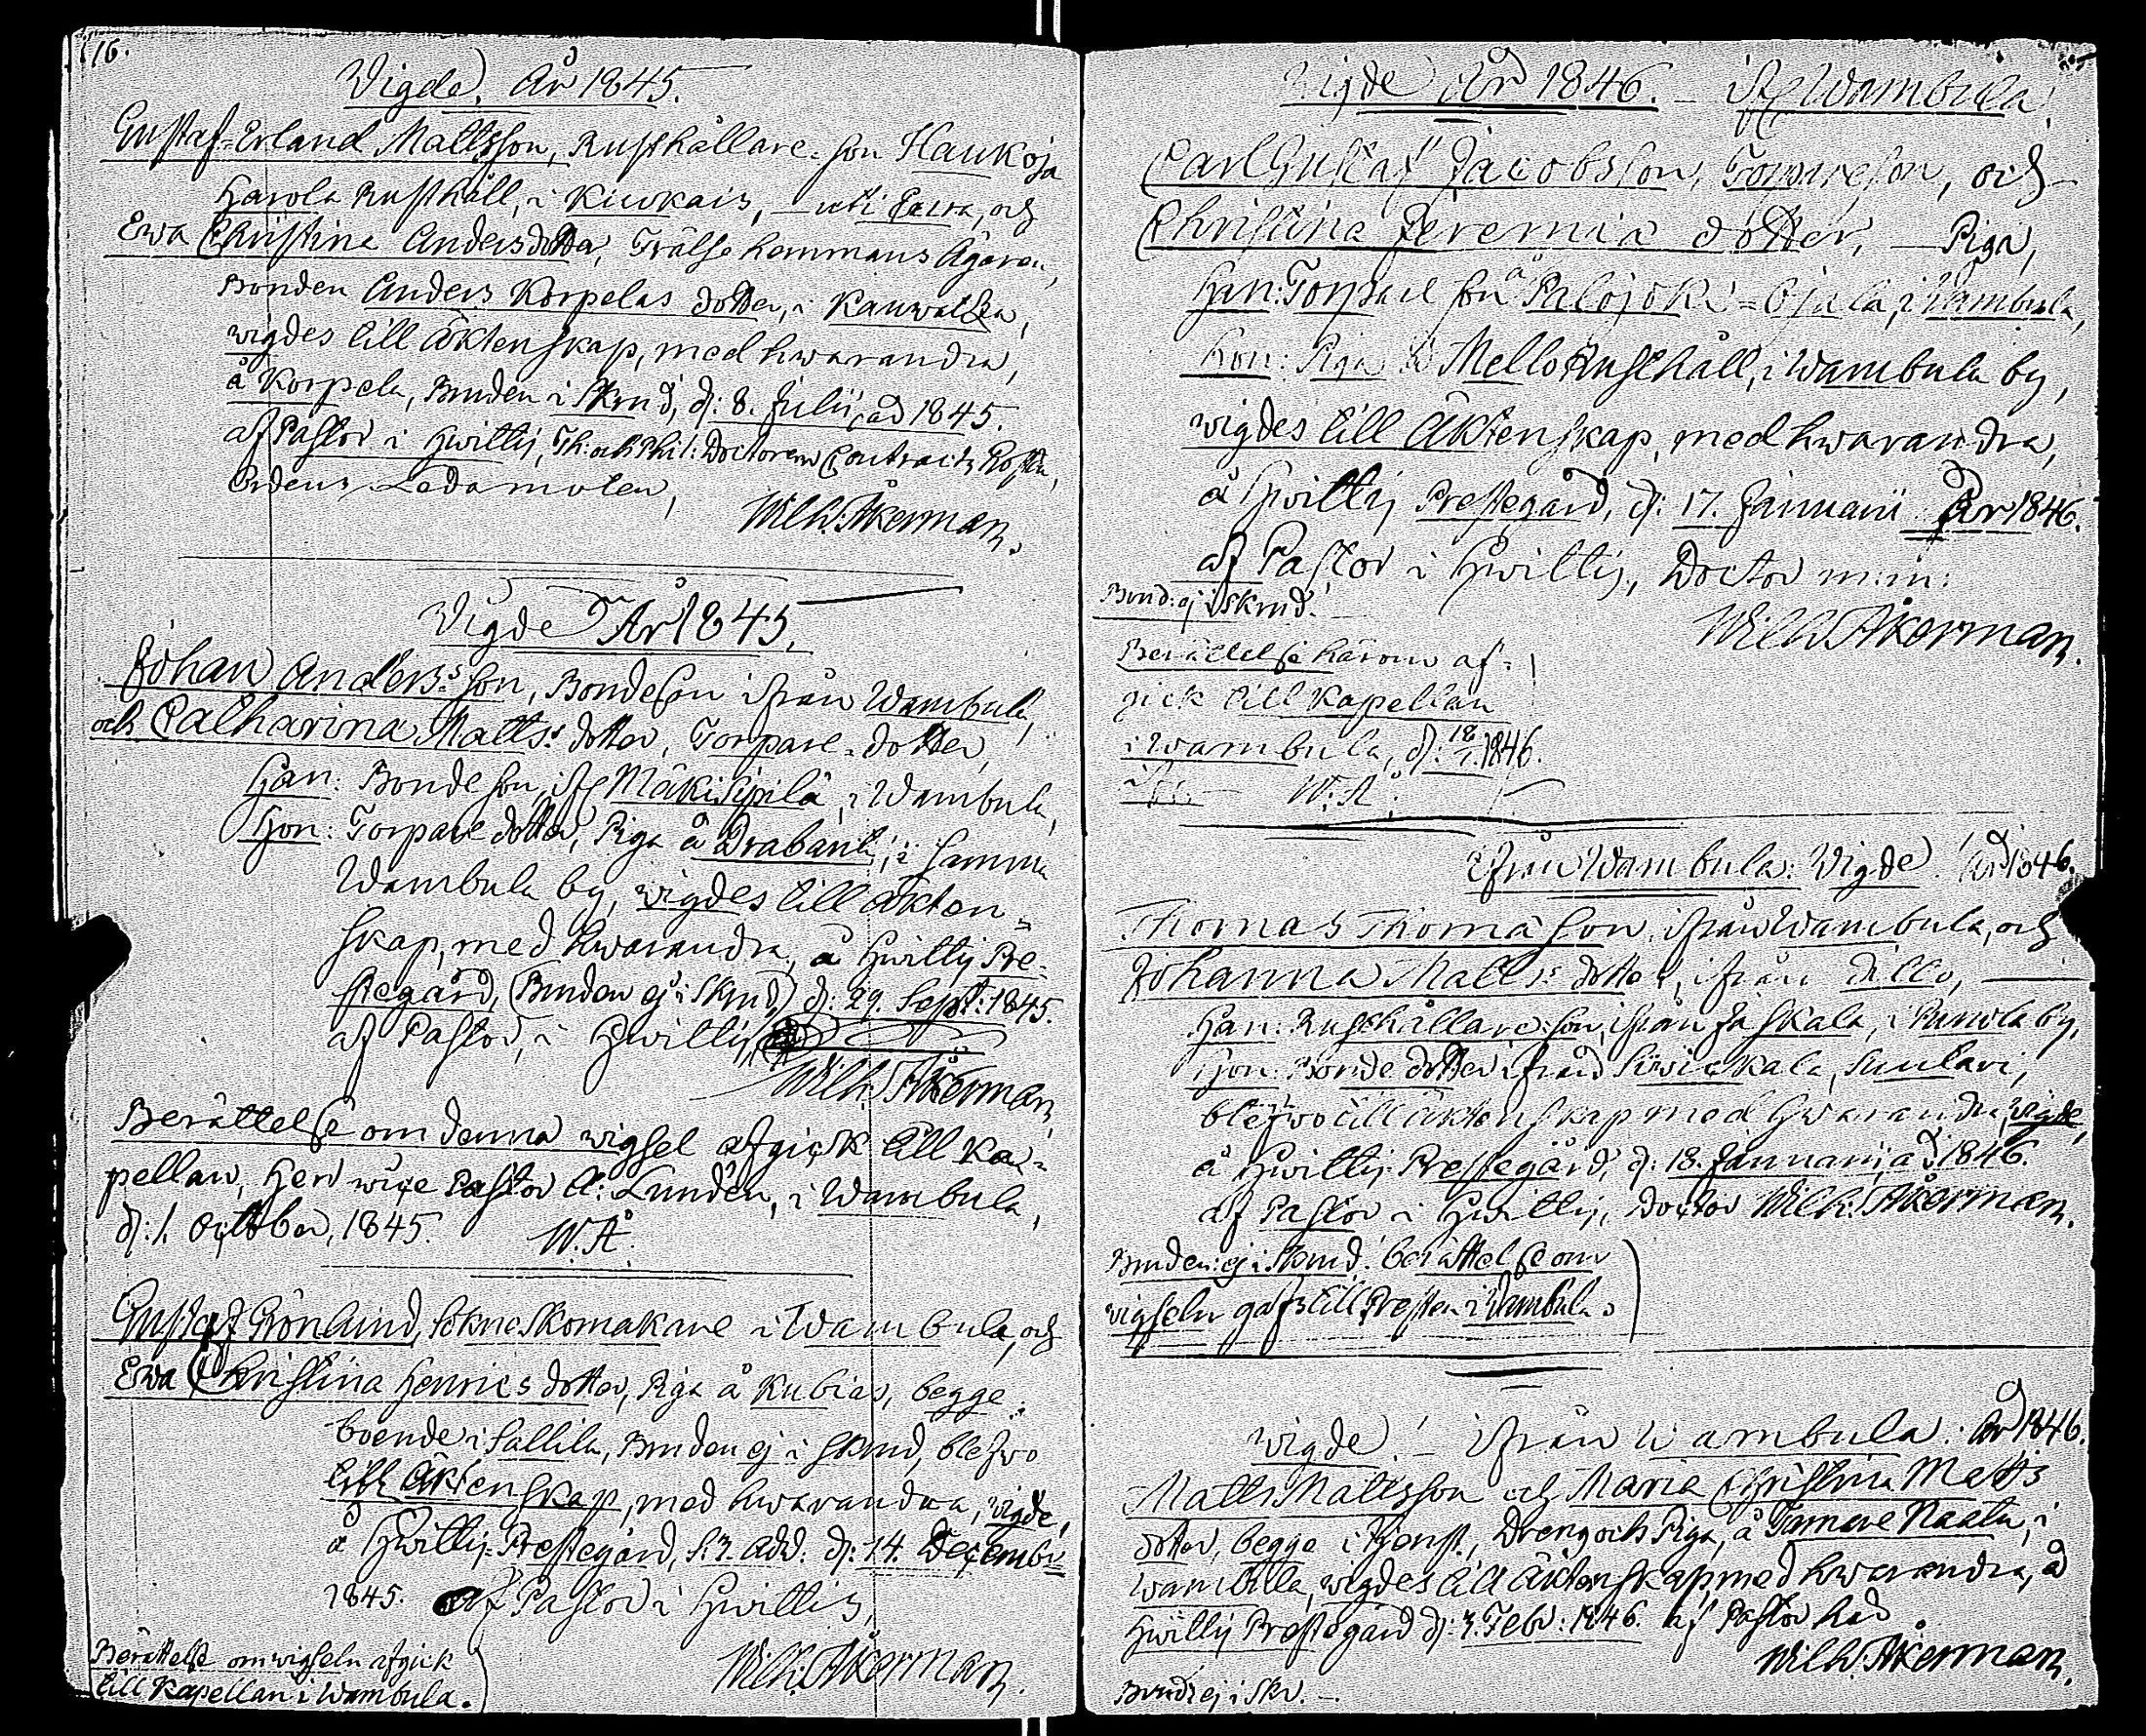 16.
Vigde. År 1845.
Gustaf-Erland Mattsson, Rusthållare-son Haukoja
Harola Rusthåll, i Kiukais, — uti Eura, och
Ewa Christina Andersdotter, Frälse hemmans Ägaren,
Bonden Anders Korpelas dotter, i Kauwatsa,
wigdes till Äktenskap, med hwarandra,
å Korpela, Bruden i Skrud, d: 8. Julii, åd 1845.
af Pastor i Hwittis, Th: och Phil: Doctoren Contracts
Ordens Ledamoten,
Wilh: Åkerman.
Vigde År 1845.
Johan Anders: son, Bondeson ifrån Wambula,
och Catharina Matts: dotter, Torpare-dotter,
Han: Bondeson, ifr Mäkisipilä, i Wambula,
Hon: Torpare dotter, Piga å Drabant, i samma
Wambula by, wigdes till äkten-
skap, med hwarandra, å Hwittis Pre-
stegård, (Bruden ej i Skrud) d: 29. Sept: 1845.
af Pastor, i Hwittis
Wilh: Åkerman,
Berättelse om denna wigsel afgick till Ka-
pellan, Herr wice Pastor A: Lunden, i Wambula,
d: 1. October, 1845. W. Å.
Gustaf Grönlund, Sokneskomakare i Wambula, och
Ewa Christina Henrics dotter, Piga å Kubias, begge
boende i Sallila, Bruden ej i skrud, blefwo
till Äktenskap, med hwarandra, vigde,
å Hwittis Prestegård, d: 14. December
1845. af Pastor i Hwittis,
Wilh: Åkerman.
Berättelse om wigseln afgick
till Kapellan i Wambula.
Vigde År 1846. — ifr Wambula.
Carl Gustaf Jacobsson, Torpareson, och —
Christina Jeremiæ dotter, — Piga,
Han: Torpare son å Palojoki-Ojala, i Wambula,
Hon: Piga å Mello Rusthåll, i Wambula by,
wigdes till Äktenskap, med hwarandra,
å Hwittis Prestegård, d: 17. Januarii År 1846.
af Pastor i Hwittis, Doctor m:m:
Brud: ej i skrud.
Wilh: Åkerman.
Berättelse härom af-
gick till Kapellan
i Wambula, d: 18/1. 1846.
W. Å.
Ifrån Wambula: Vigde. År 1846.
Thomas Thomasson, ifrån Wambula, och
Johanna Matts: dotter, ifrån ditto, —
Han: Rusthållare-son, ifrån Jaskala, i Punola by,
Hon: Bonde dotter ifrån Siwickala, Suntari,
blefwo till äktenskap med hwarandra, vigde,
å Hwittis Prestegård, d: 18. Januarii, åd 1846.
af Pastor i Hwittis, Doctor Wilh: Åkerman.
Bruden: ej i skrud. berättelse om
wigseln gafs till Presten i Wambula.
Wigde! — ifrån Wambula. År 1846.
Matts Mattsson och Maria Christina Matts
dotter, begge i tjenst, Dreng och Piga, å Tamare Naatu, i
Wambula, wigdes till äktenskap med hwarandra, å
Hwittis Prestegård d: 7. Febr: 1846. af Pastor
Wilh: Åkerman.
Brud: ej i Skr. —